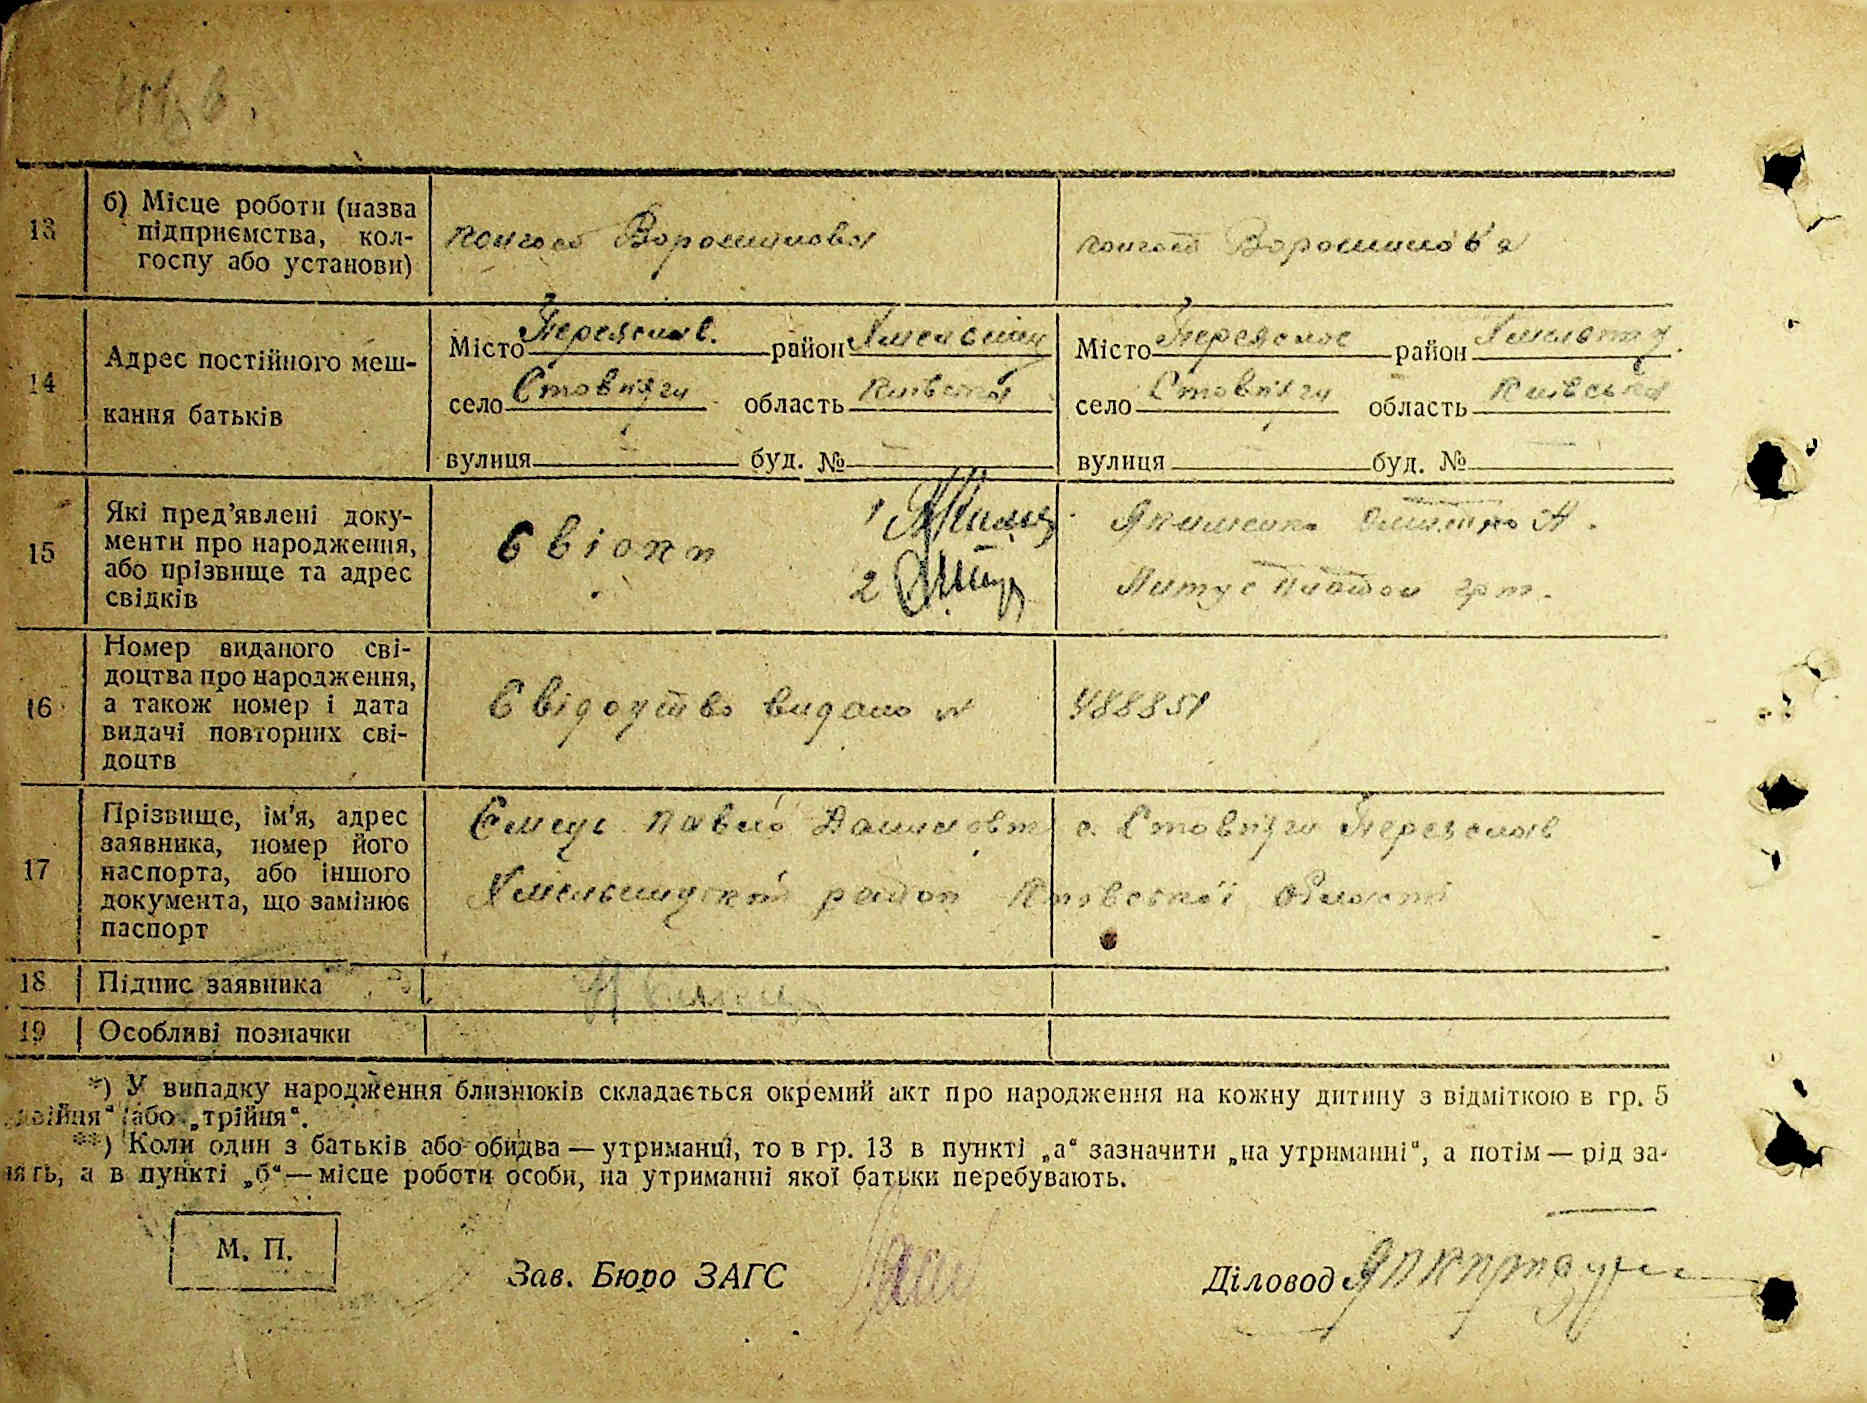 13
б) Місце роботи (назва
підприємства, кол-
госпу або установи)
колгосп Ворошилова
колгосп Ворошилова
14
Адрес постійного меш-
кання батьків
Місто Переяслав. район Хмельниц
село Стовпяги область Київська
вулиця буд. №
Місто Переяслав район
село Стовпяги область Київська
вулиця буд. №
15
Які пред’явлені доку-
менти про народження,
або прізвище та адрес
свідків
Свідки
1
2
Якименко Дмитро А.
Питус Платон
16
Номер виданого сві-
доцтва про народження,
а також номер і дата
видачі повторних сві-
доцтв
Свідоцтво видано № 488851
17
Прізвище, ім’я, адрес
заявника, номер його
паспорта, або іншого
документа, що замінює
паспорт
Павло с. Стовпяги Переяслав
Хмельницький район Київської області
18 Підпис заявника
19 Особливі позначки
*) У випадку народження близнюків складається окремий акт про народження на кожну дитину з відміткою в гр. 5
„двійня“ або „трійня“.
**) Коли один з батьків або обидва — утриманці, то в гр. 13 в пункті „а“ зазначити „на утриманні“, а потім — рід за-
нять, а в пункті „б“ — місце роботи особи, на утриманні якої батьки перебувають.
М. П.
Зав. Бюро ЗАГС
Діловод